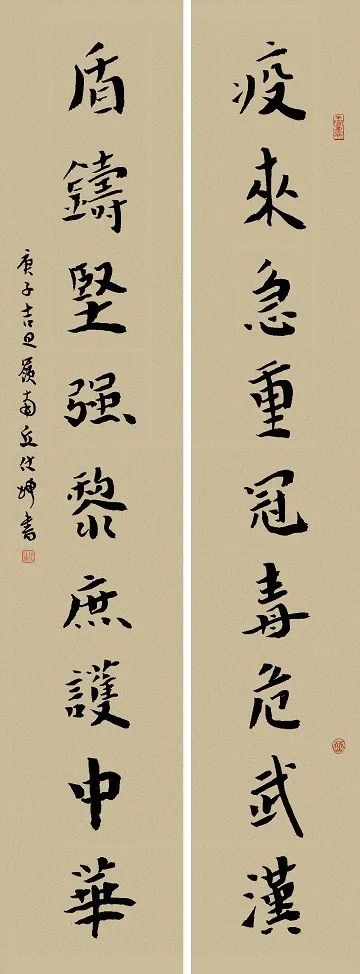 疫來急重冠毒危武漢
盾鑄堅强黎庶護中華
庚子吉旦嶺南丘仕坤書